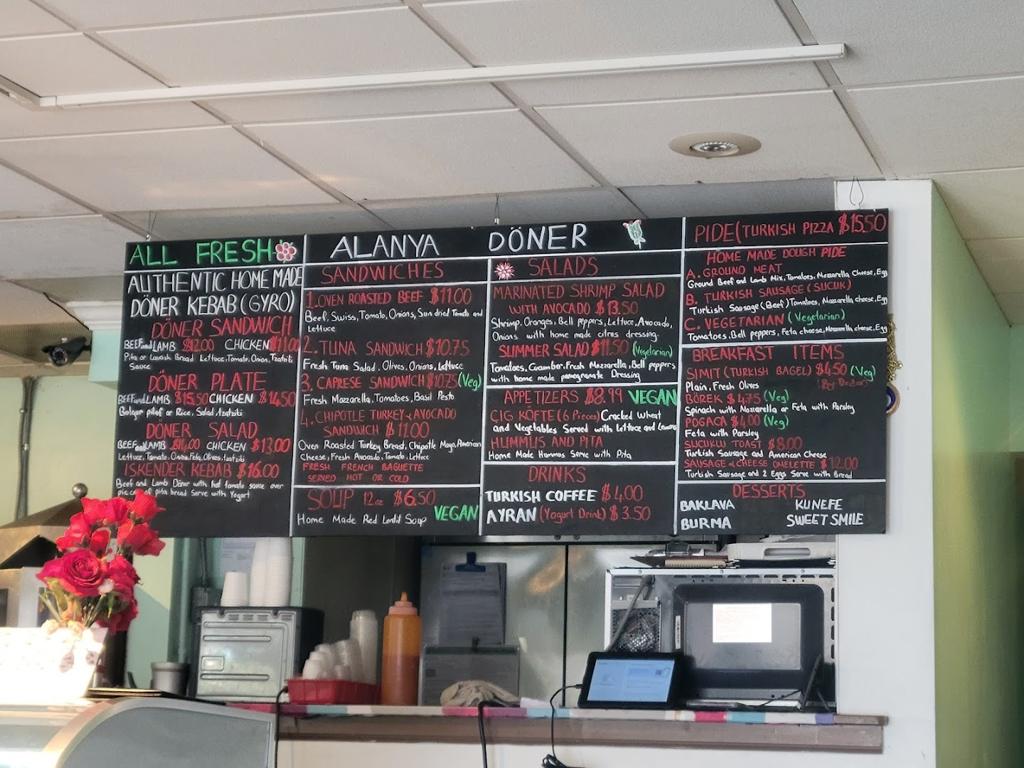 ALL FRESH
AUTHENTIC HOME MADE
DÖNER KEBAB (GYRO)
DÖNER SANDWICH
BEEF and LAMB $12.00 CHICKEN $11.00
Pita or Lavash Bread Lettuce, Tomato, Onion, Tzatziki
Sauce
DÖNER PLATE
BEEF and LAMB $15.50 CHICKEN $14.50
Bulgur pilaf or Rice, Salad, tzatziki
DÖNER SALAD
BEEF and LAMB $14.00 CHICKEN $13.00
Lettuce, Tomato, Onion, Feta, Olives, tzatziki
ISKENDER KEBAB $16.00
Beef and Lamb Döner with hot tomato sauce over
pita bread Serve with Yogurt
ALANYA DÖNER
SANDWICHES
1. OVEN ROASTED BEEF $11.00
Beef, Swiss, Tomato, Onions, Sun dried Tomato and
Lettuce
2. TUNA SANDWICH $10.75
Fresh Tuna Salad, Olives, Onions, Lettuce
3. CAPRESE SANDWICH $10.75 (Veg)
Fresh Mozzarella, Tomatoes, Basil Pesto
4. CHIPOTLE TURKEY & AVOCADO
SANDWICH $11.00
Oven Roasted Turkey Bread, Chipotle Mayo, American
Cheese, Fresh Avocado, Tomato, Lettuce
FRESH FRENCH BAGUETTE
SERVED HOT OR COLD
SOUP 12 oz $6.50
Home Made Red Lentil Soup VEGAN
SALADS
MARINATED SHRIMP SALAD
WITH AVOCADO $13.50
Shrimp, Oranges, Bell peppers, Lettuce, Avocado,
Onions with home made citrus dressing
SUMMER SALAD $11.50 (Vegetarian)
Tomatoes, Cucumber, Fresh Mozzarella, Bell peppers
with home made pomegranate Dressing
APPETIZERS $8.99 VEGAN
CIG KÖFTE (6 Pieces) Cracked Wheat
and Vegetables Served with Lettuce and
HUMMUS AND PITA
Home Made Hummus Serve with Pita
DRINKS
TURKISH COFFEE $4.00
AYRAN (Yogurt Drink) $3.50
PIDE (TURKISH PIZZA $15.50
HOME MADE DOUGH PIDE
A. GROUND MEAT
Ground Beef and Lamb Mix, Tomatoes, Mozzarella Cheese, Egg
B. TURKISH SAUSAGE (SUCUK)
Turkish Sausage (Beef) Tomatoes, Mozzarella cheese, Egg
C. VEGETARIAN (Vegetarian)
Tomatoes, Bell peppers, Feta cheese, Mozzarella cheese, Egg
BREAKFAST ITEMS
SIMIT (TURKISH BAGEL) $4.50 (Veg)
Plain, Fresh Olives
BÖREK $4.75 (Veg)
Spinach with Mozzarella or Feta with Parsley
POGACA $4.00 (Veg)
Feta with Parsley
SUCUKLU TOAST $8.00
Turkish Sausage and American Cheese
SAUSAGE & CHEESE OMELETTE $12.00
Turkish Sausage and 2 Eggs Serve with Bread
DESSERTS
BAKLAVA KUNEFE
BURMA SWEET SMILE